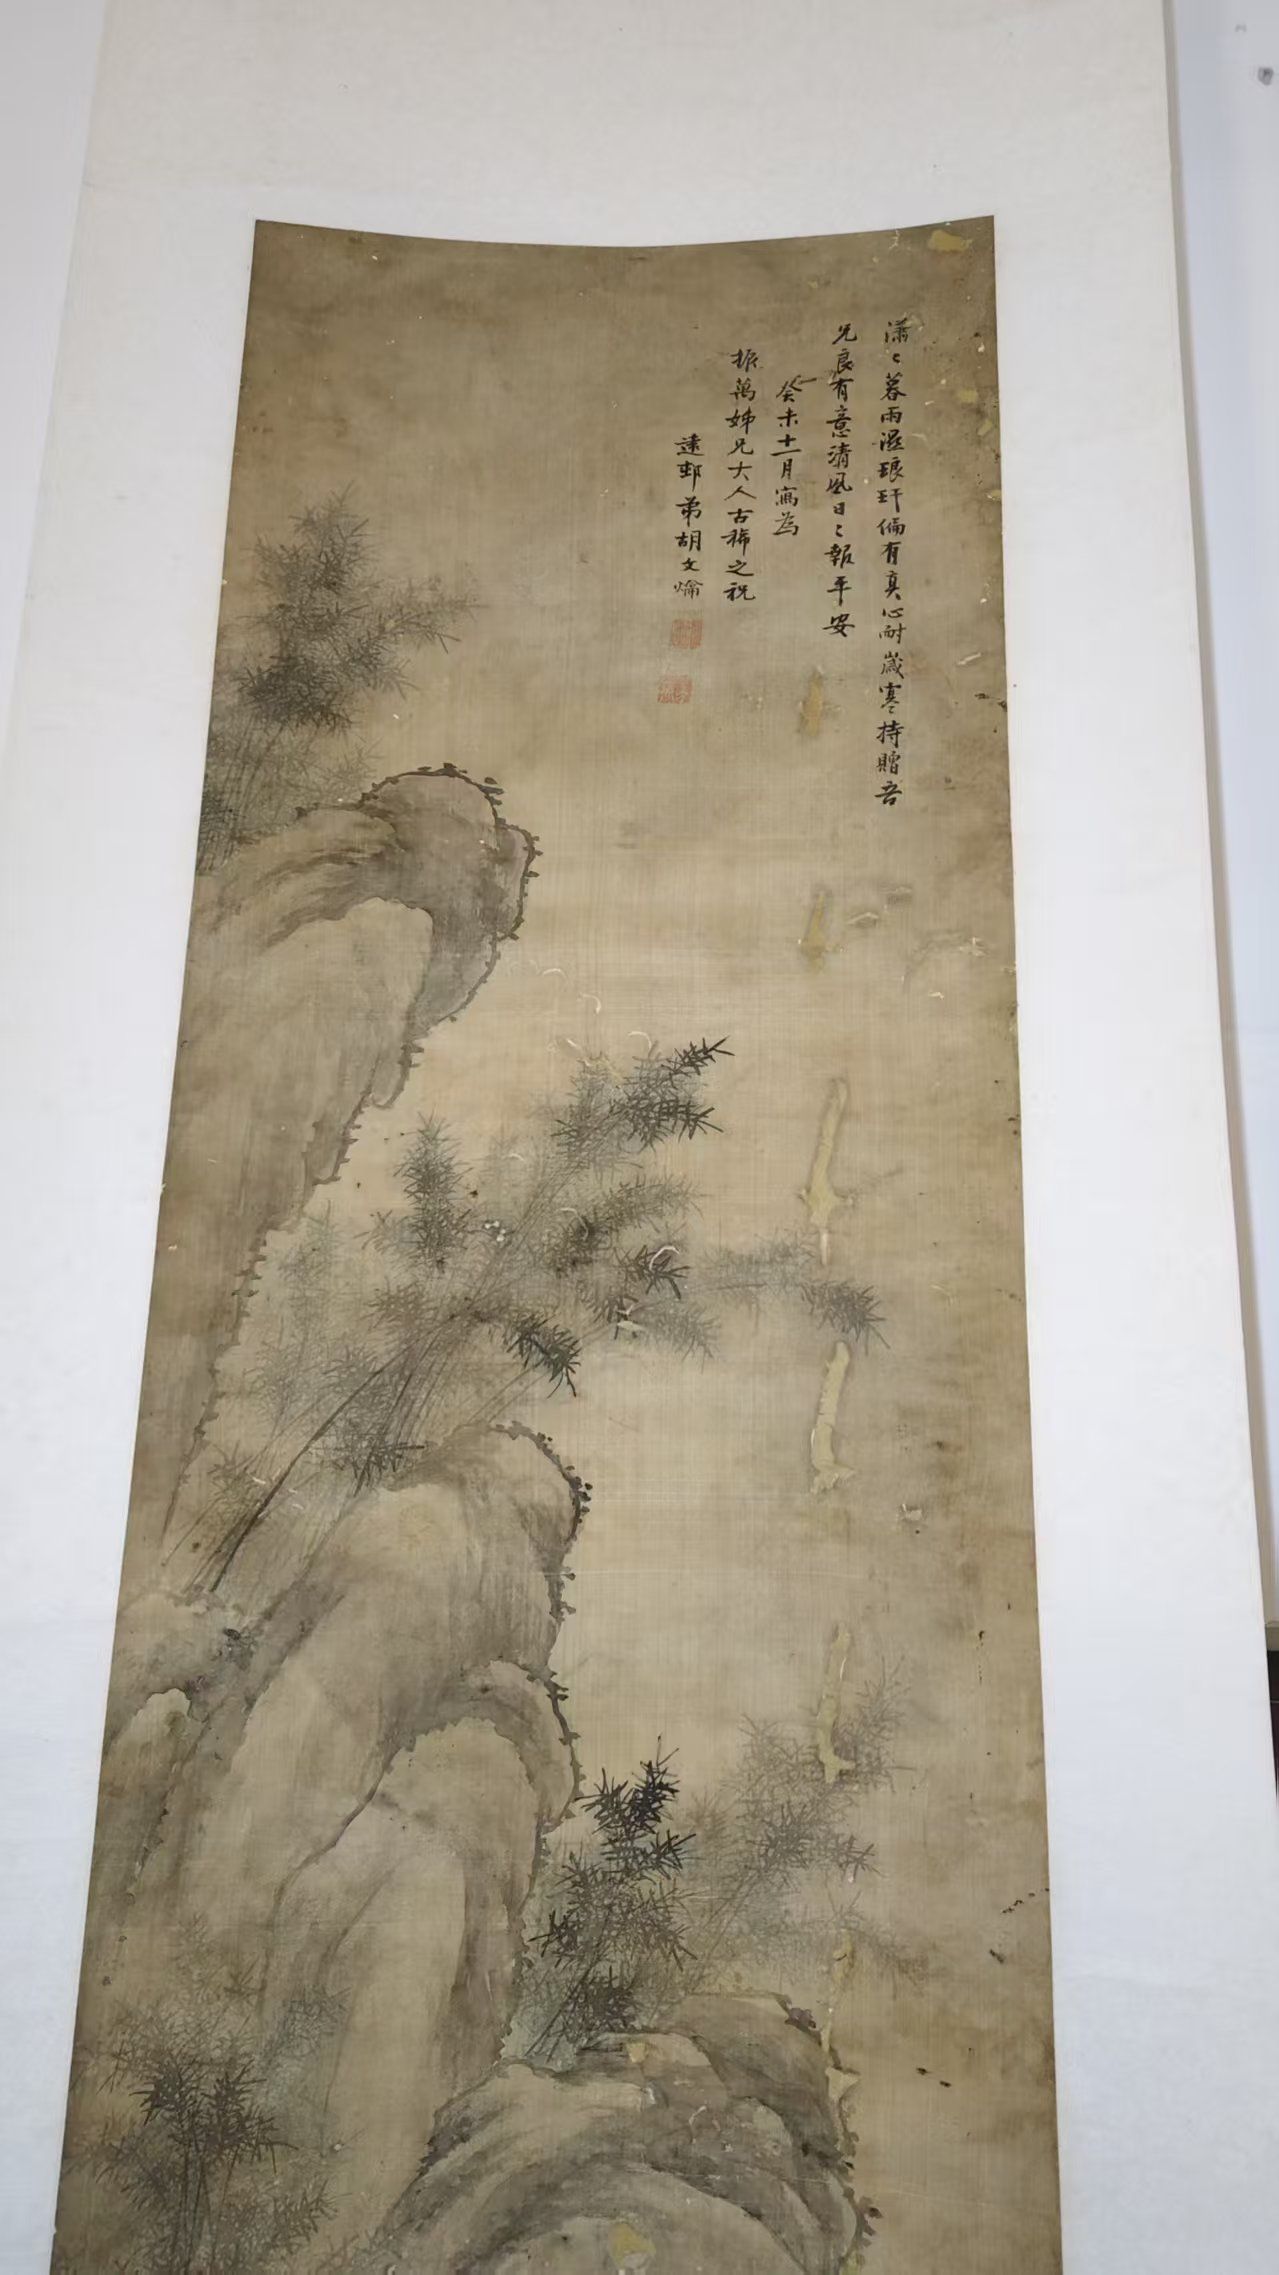 潇〻暮雨湿琅玕偏有真心耐歲寒持贈吾
兄良有意清風日〻報平安
癸未十一月寫為
振萬姊兄大人古稀之祝
遠邨弟胡文爚